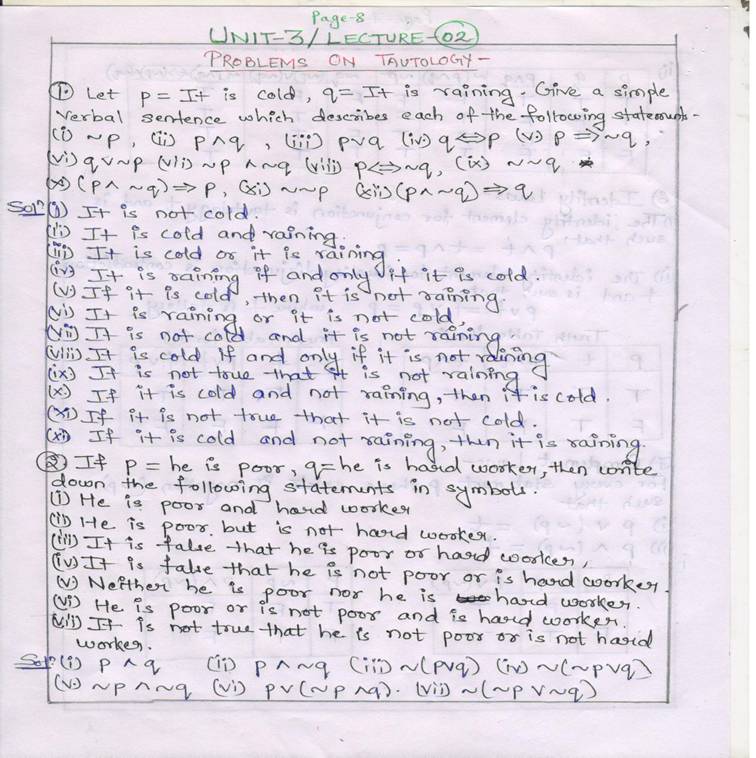 Page-8
UNIT-3/LECTURE-02
PROBLEMS ON TAUTOLOGY-
① Let p = It is cold, q = It is raining. Give a simple
verbal sentence which describes each of the following statements-
(i) ~p, (ii) p∧q, (iii) p∨q (iv) q⇔p (v) p⇒~q,
(vi) q∨~p (vii) ~p ∧~q (viii) p⇔~q, (ix) ~~q
(x) (p∧ ~q)⇒ p, (xi) ~~p (xii) (p∧~q)⇒q
Solⁿ (i) It is not cold.
(ii) It is cold and raining.
(iii) It is cold or it is raining.
(iv) It is raining if and only if it is cold.
(v) If it is cold, then it is not raining.
(vi) It is raining or it is not cold.
(vii) It is not cold and it is not raining
(viii) It is cold If and only if it is not raining
(ix) It is not true that it is not raining
(x) If it is cold and not raining, then it is cold.
(xi) If it is not true that it is not cold.
(xi) If it is cold and not raining, then it is raining.
② If p = he is poor, q = he is hard worker, then write
down the following statements in symbols.
(i) He is poor and hard worker
(ii) He is poor but is not hard worker.
(iii) It is false that he is poor or hard worker,
(iv) It is false that he is not poor or is hard worker.
(v) Neither he is poor nor he is hard worker.
(vi) He is poor or is not poor and is hard worker.
(vii) It is not true that he is not poor or is not hard
worker.
Solⁿ: (i) p∧q (ii) p∧~q (iii) ~(p∨q) (iv) ~(~p∨q)
(v) ~p∧~q (vi) p∨(~p∧q). (vii) ~(~p∨~q)